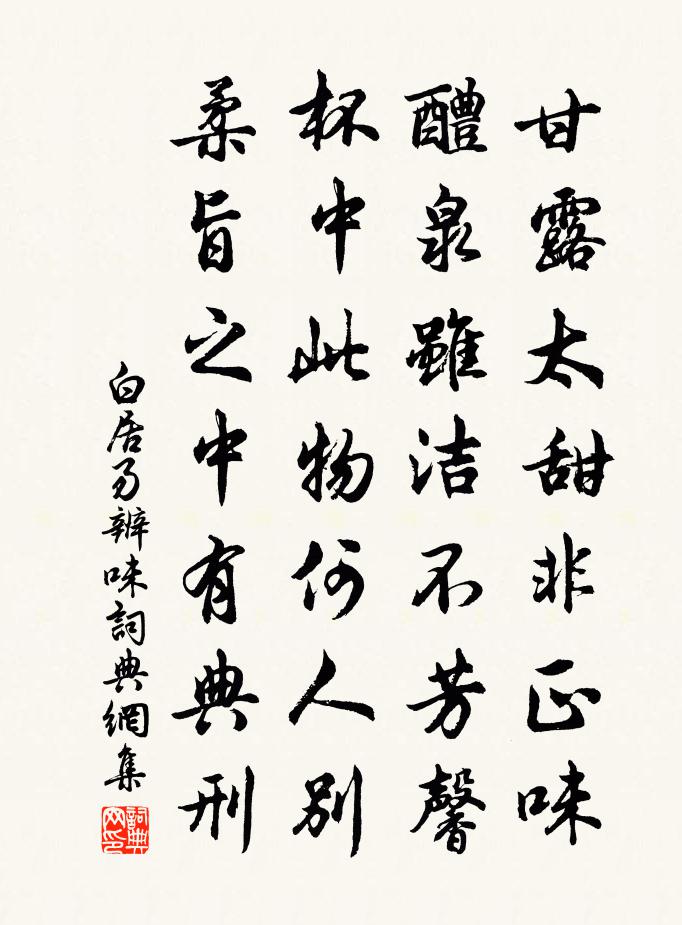 甘露太甜非正味
醴泉雖洁不芳馨
杯中此物何人別
柔旨之中有典刑
白居易辨味詞典網集
詞典網印